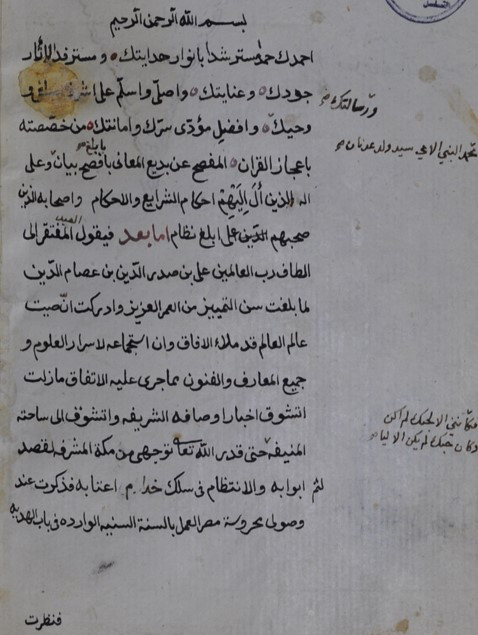 بسم الله الرحمن الرحيم
احمدك حمد مسترشد بانوار هدايتك ومسترفد لاثار
جودك وعنايتك واصلي واسلم على اشرف و
وحيك وافضل مؤدى سرك وامانتك من خصصته
باعجاز القران المفصح عن بديع المعانى بافصح بيان وعلى
اله الذين أل اليهم احكام الشرايع والاحكام واصحابه الذين
صحبهم الدين على ابلغ نظام اما بعد فيقول العبد المفتقر الى
الطاف رب العالمين على بن صدر الدين بن عصام الدين
لما بلغت سن التمييز من العمر العزيز وادركت ان صيت
عالم العالم قد ملاء الافاق وان استجماعه لاسرار العلوم و
جميع المعارف والفنون مما جرى عليه الاتفاق مازلت
اتشوق اخبار اوصافه الشريفه واتشوف الى ساحته
المنيفة حتى قدر الله تعا توجهى من مكة المشرفه لقصد
لثم ابوابه والانتظام فى سلك خدام اعتابه فذكرت عند
وصولى محروسة مصر العمل بالسنة السنيه الوارده فى باب الهديه
فنظرت
ورسالتك
محمد النبي الامي سيد ولد عدنان